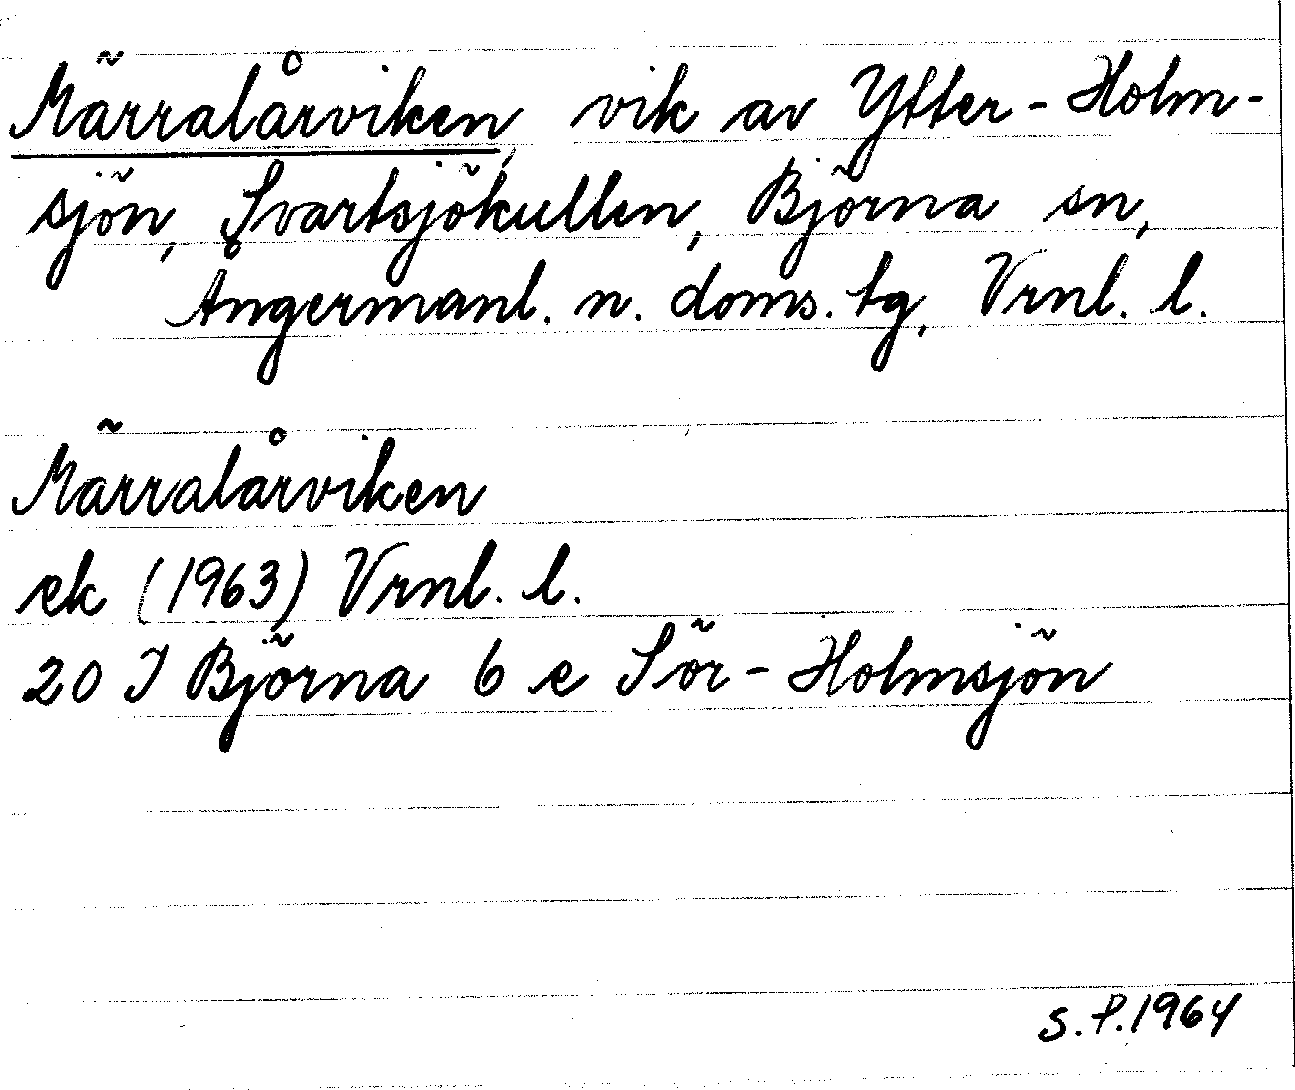 Märralårviken, vik av Ytter-Holm-
sjön, Svartsjökullen, Björna sn,
Ångermanl. n. doms. tg, Vrnl. l.
Märralårviken
ek (1963) Vrnl. l.
20 J Björna 6 e Sör-Holmsjön
S.P. 1964